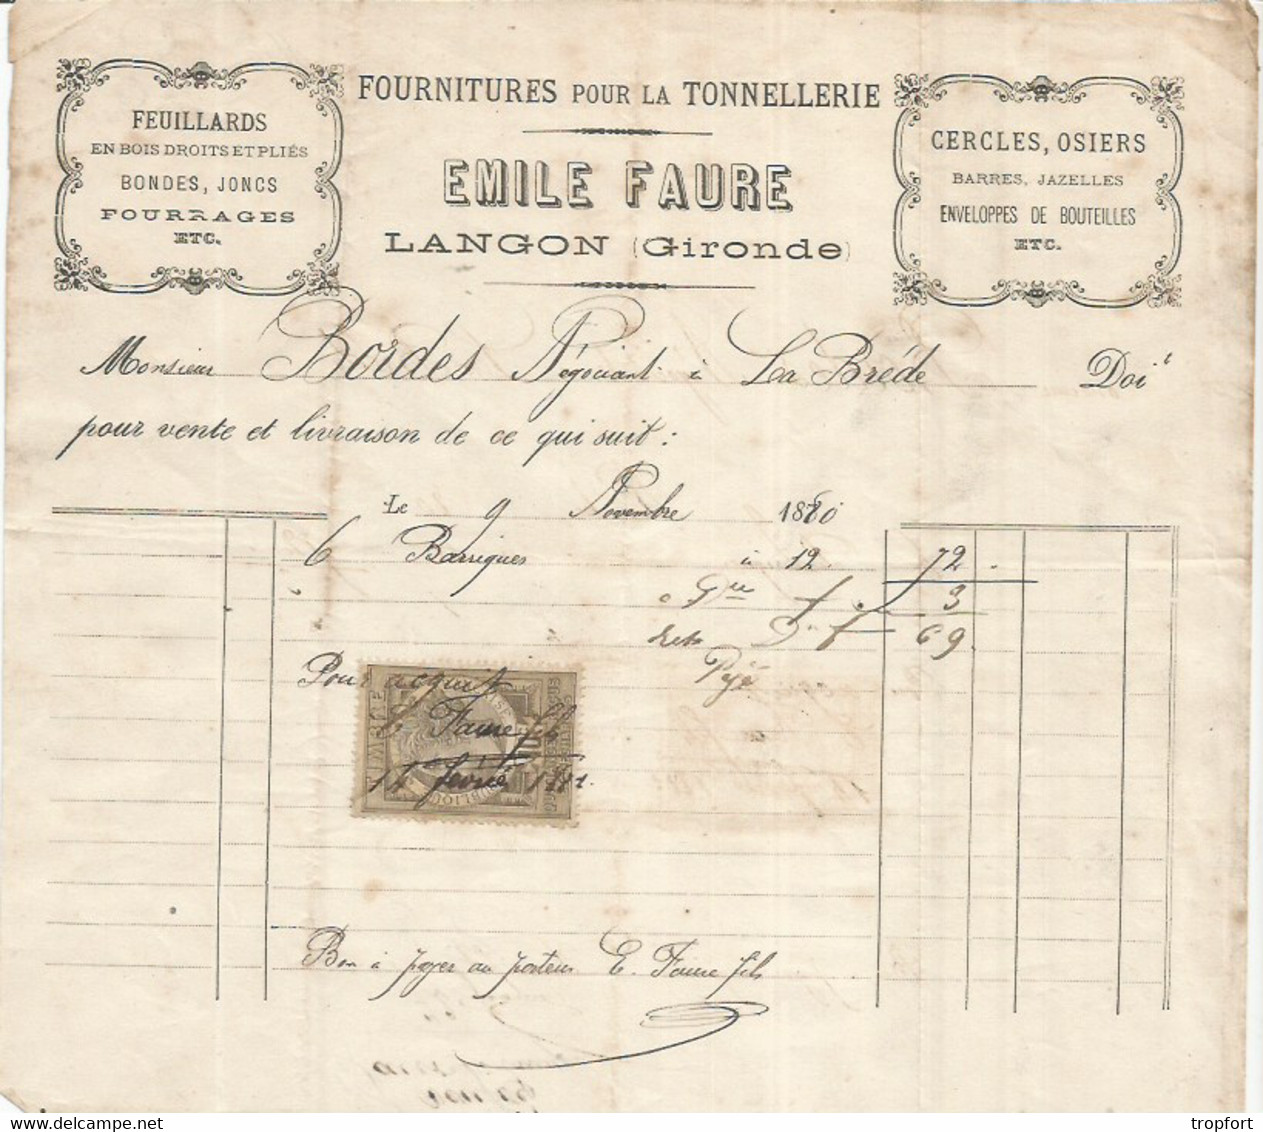 FOURNITURES POUR LA TONNELLERIE
EMILE FAURE
LANGON (Gironde)
FEUILLARDS
EN BOIS DROITS ET PLIÉS
BONDES, JONCS
FOURRAGES
ETC.
CERCLES, OSIERS
BARRES, JAZELLES
ENVELOPPES DE BOUTEILLES
ETC.
Monsieur Bordes Négociant à La Brède Doit
pour vente et livraison de ce qui suit :
Le 9 Novembre 1880
6 Barriques à 12 72
3
69
Payé
Pour acquit
E Faure fils
14 février 1881.
TIMBRE
Bon à payer au porteur E. Faure fils
tropfort